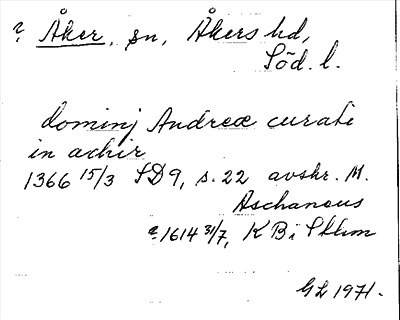 ? Åker, sn, Åkers hd,
Söd. l.
dominj Andreæ curati
in achir
1366 15/3 SD9, s. 22 avskr. M.
Aschaneus
?1614 31/7, KB i Sthlm
GL 1971.